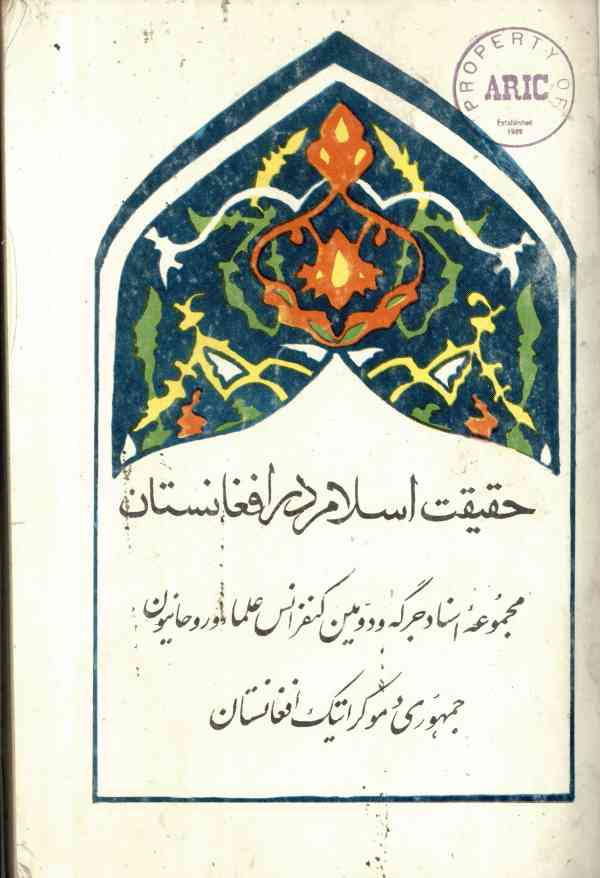 PROPERTY OF
ARIC
Established
1989
حقیقت اسلام در افغانستان
مجموعهٔ اسناد جرگه و دومین کنفرانس علما و روحانیون
جمهوری دموکراتیک افغانستان